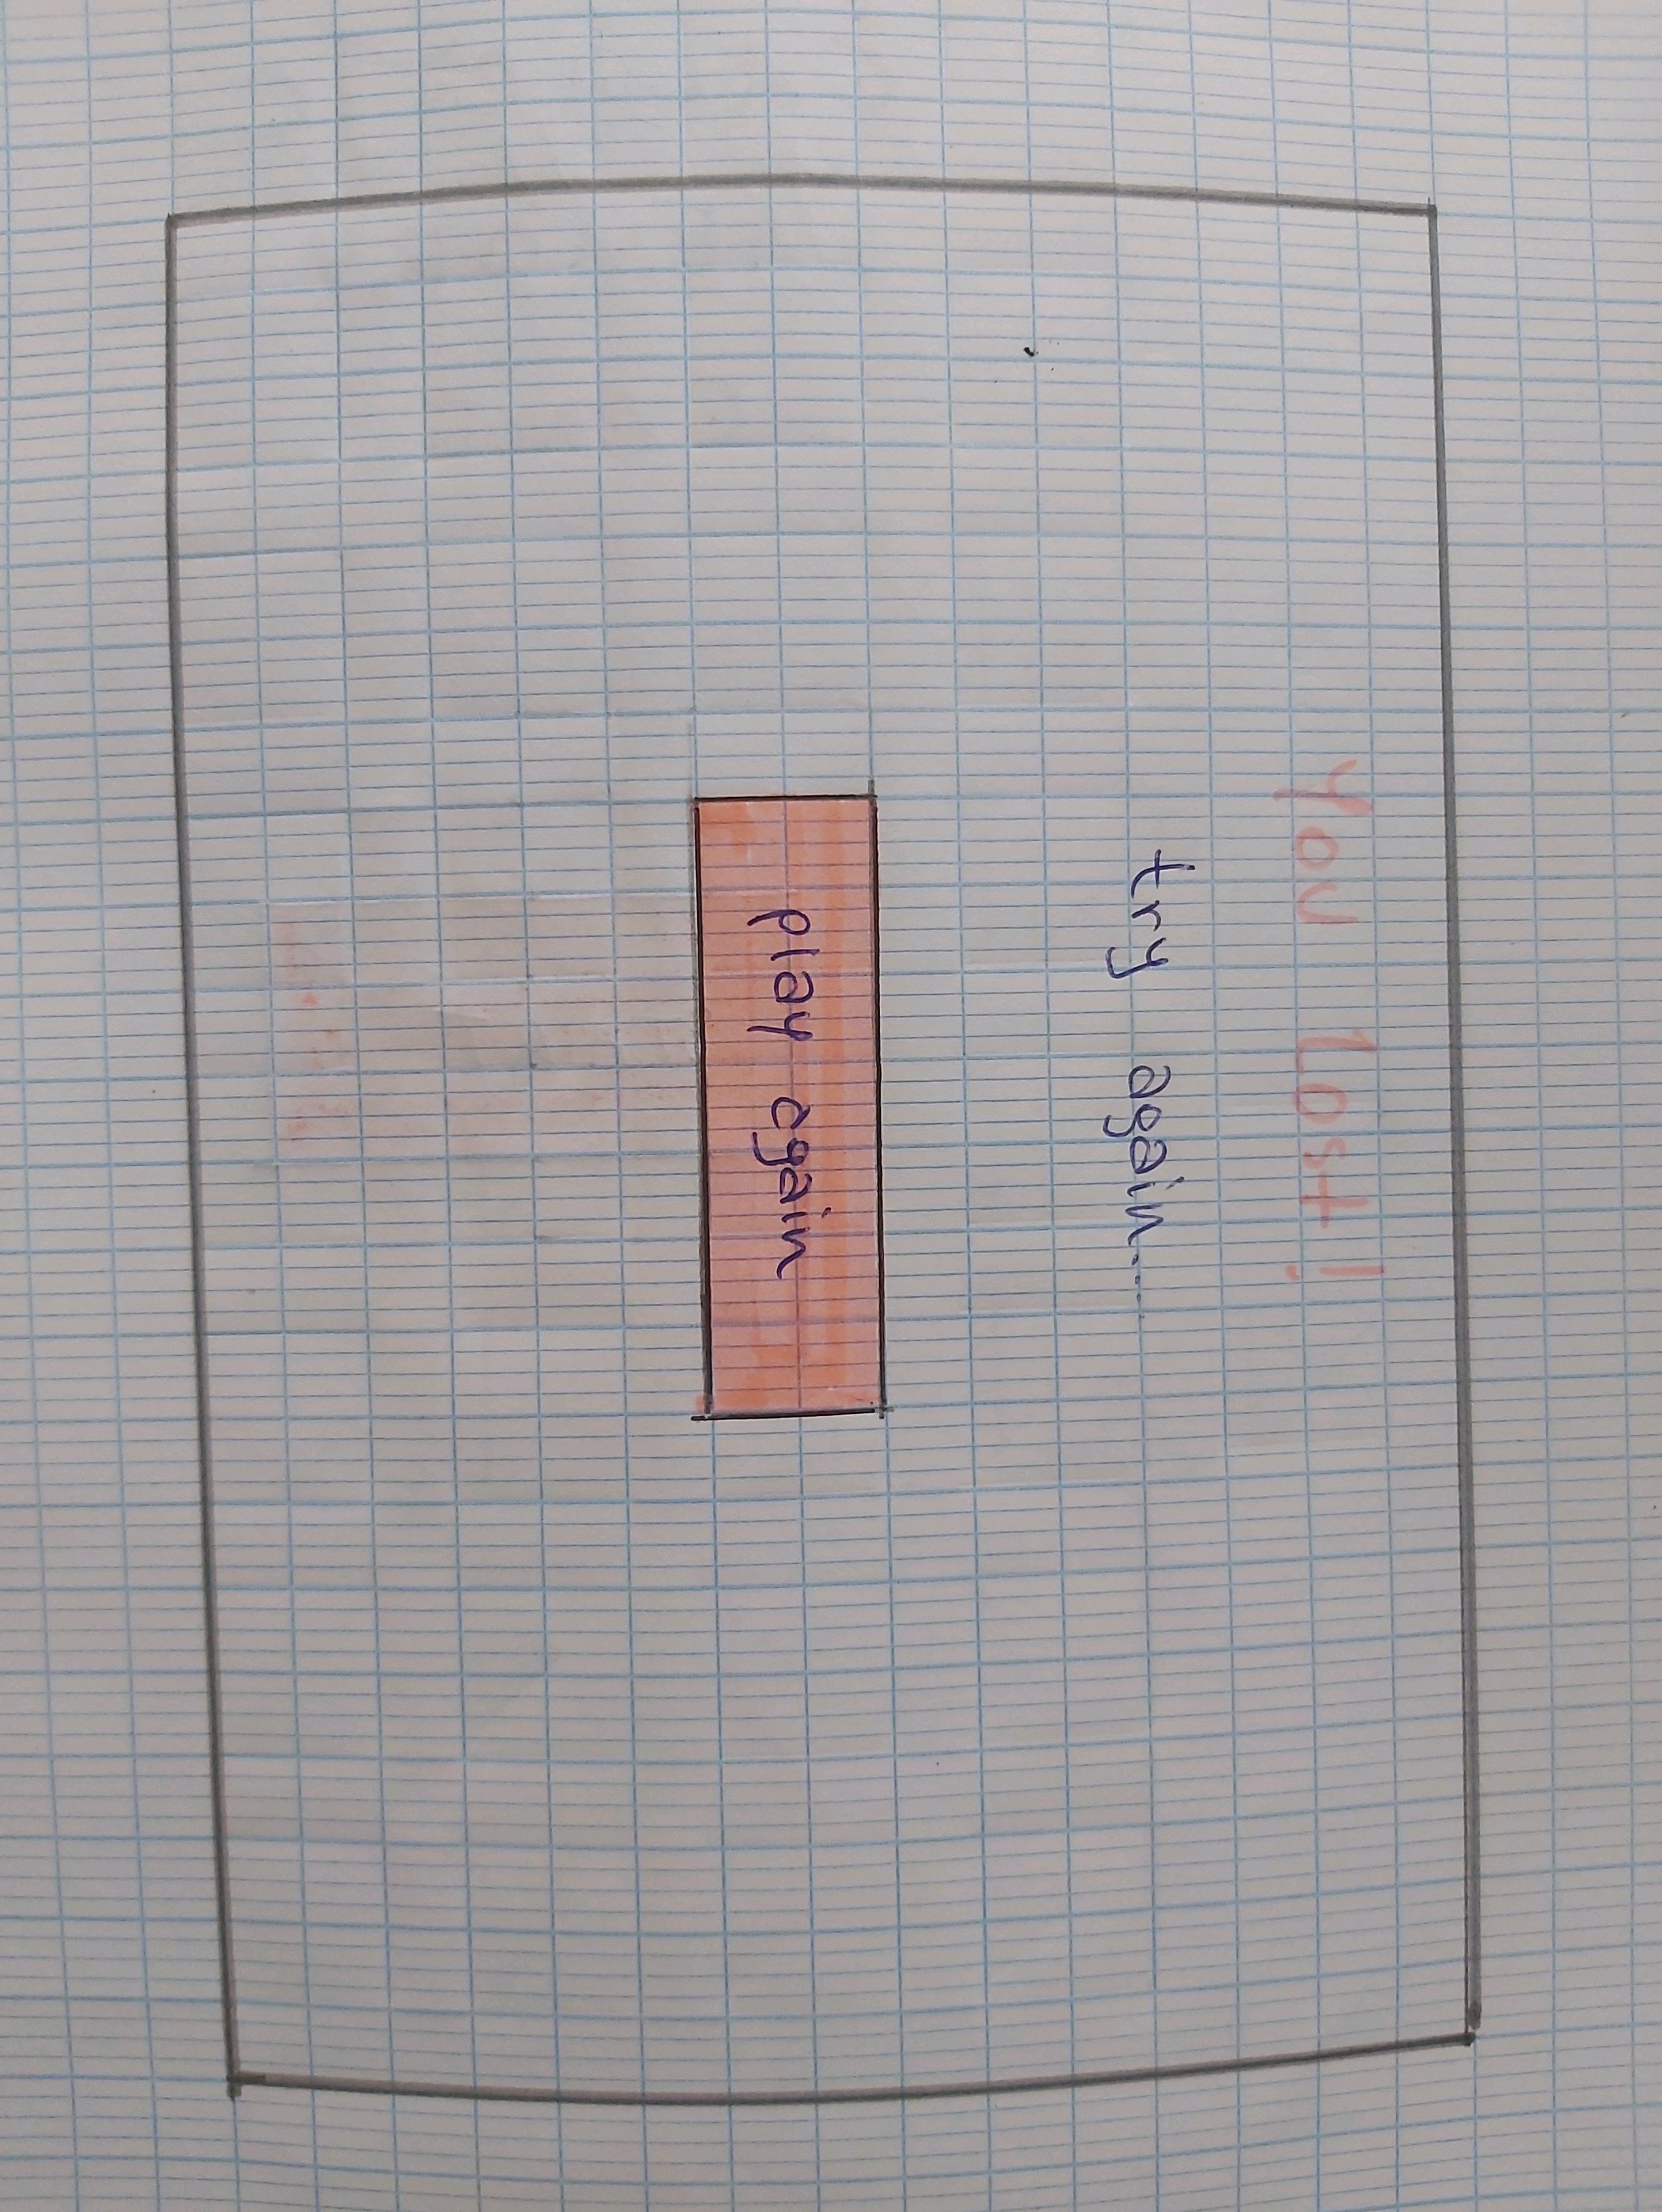 You Lost!
try again....
play again